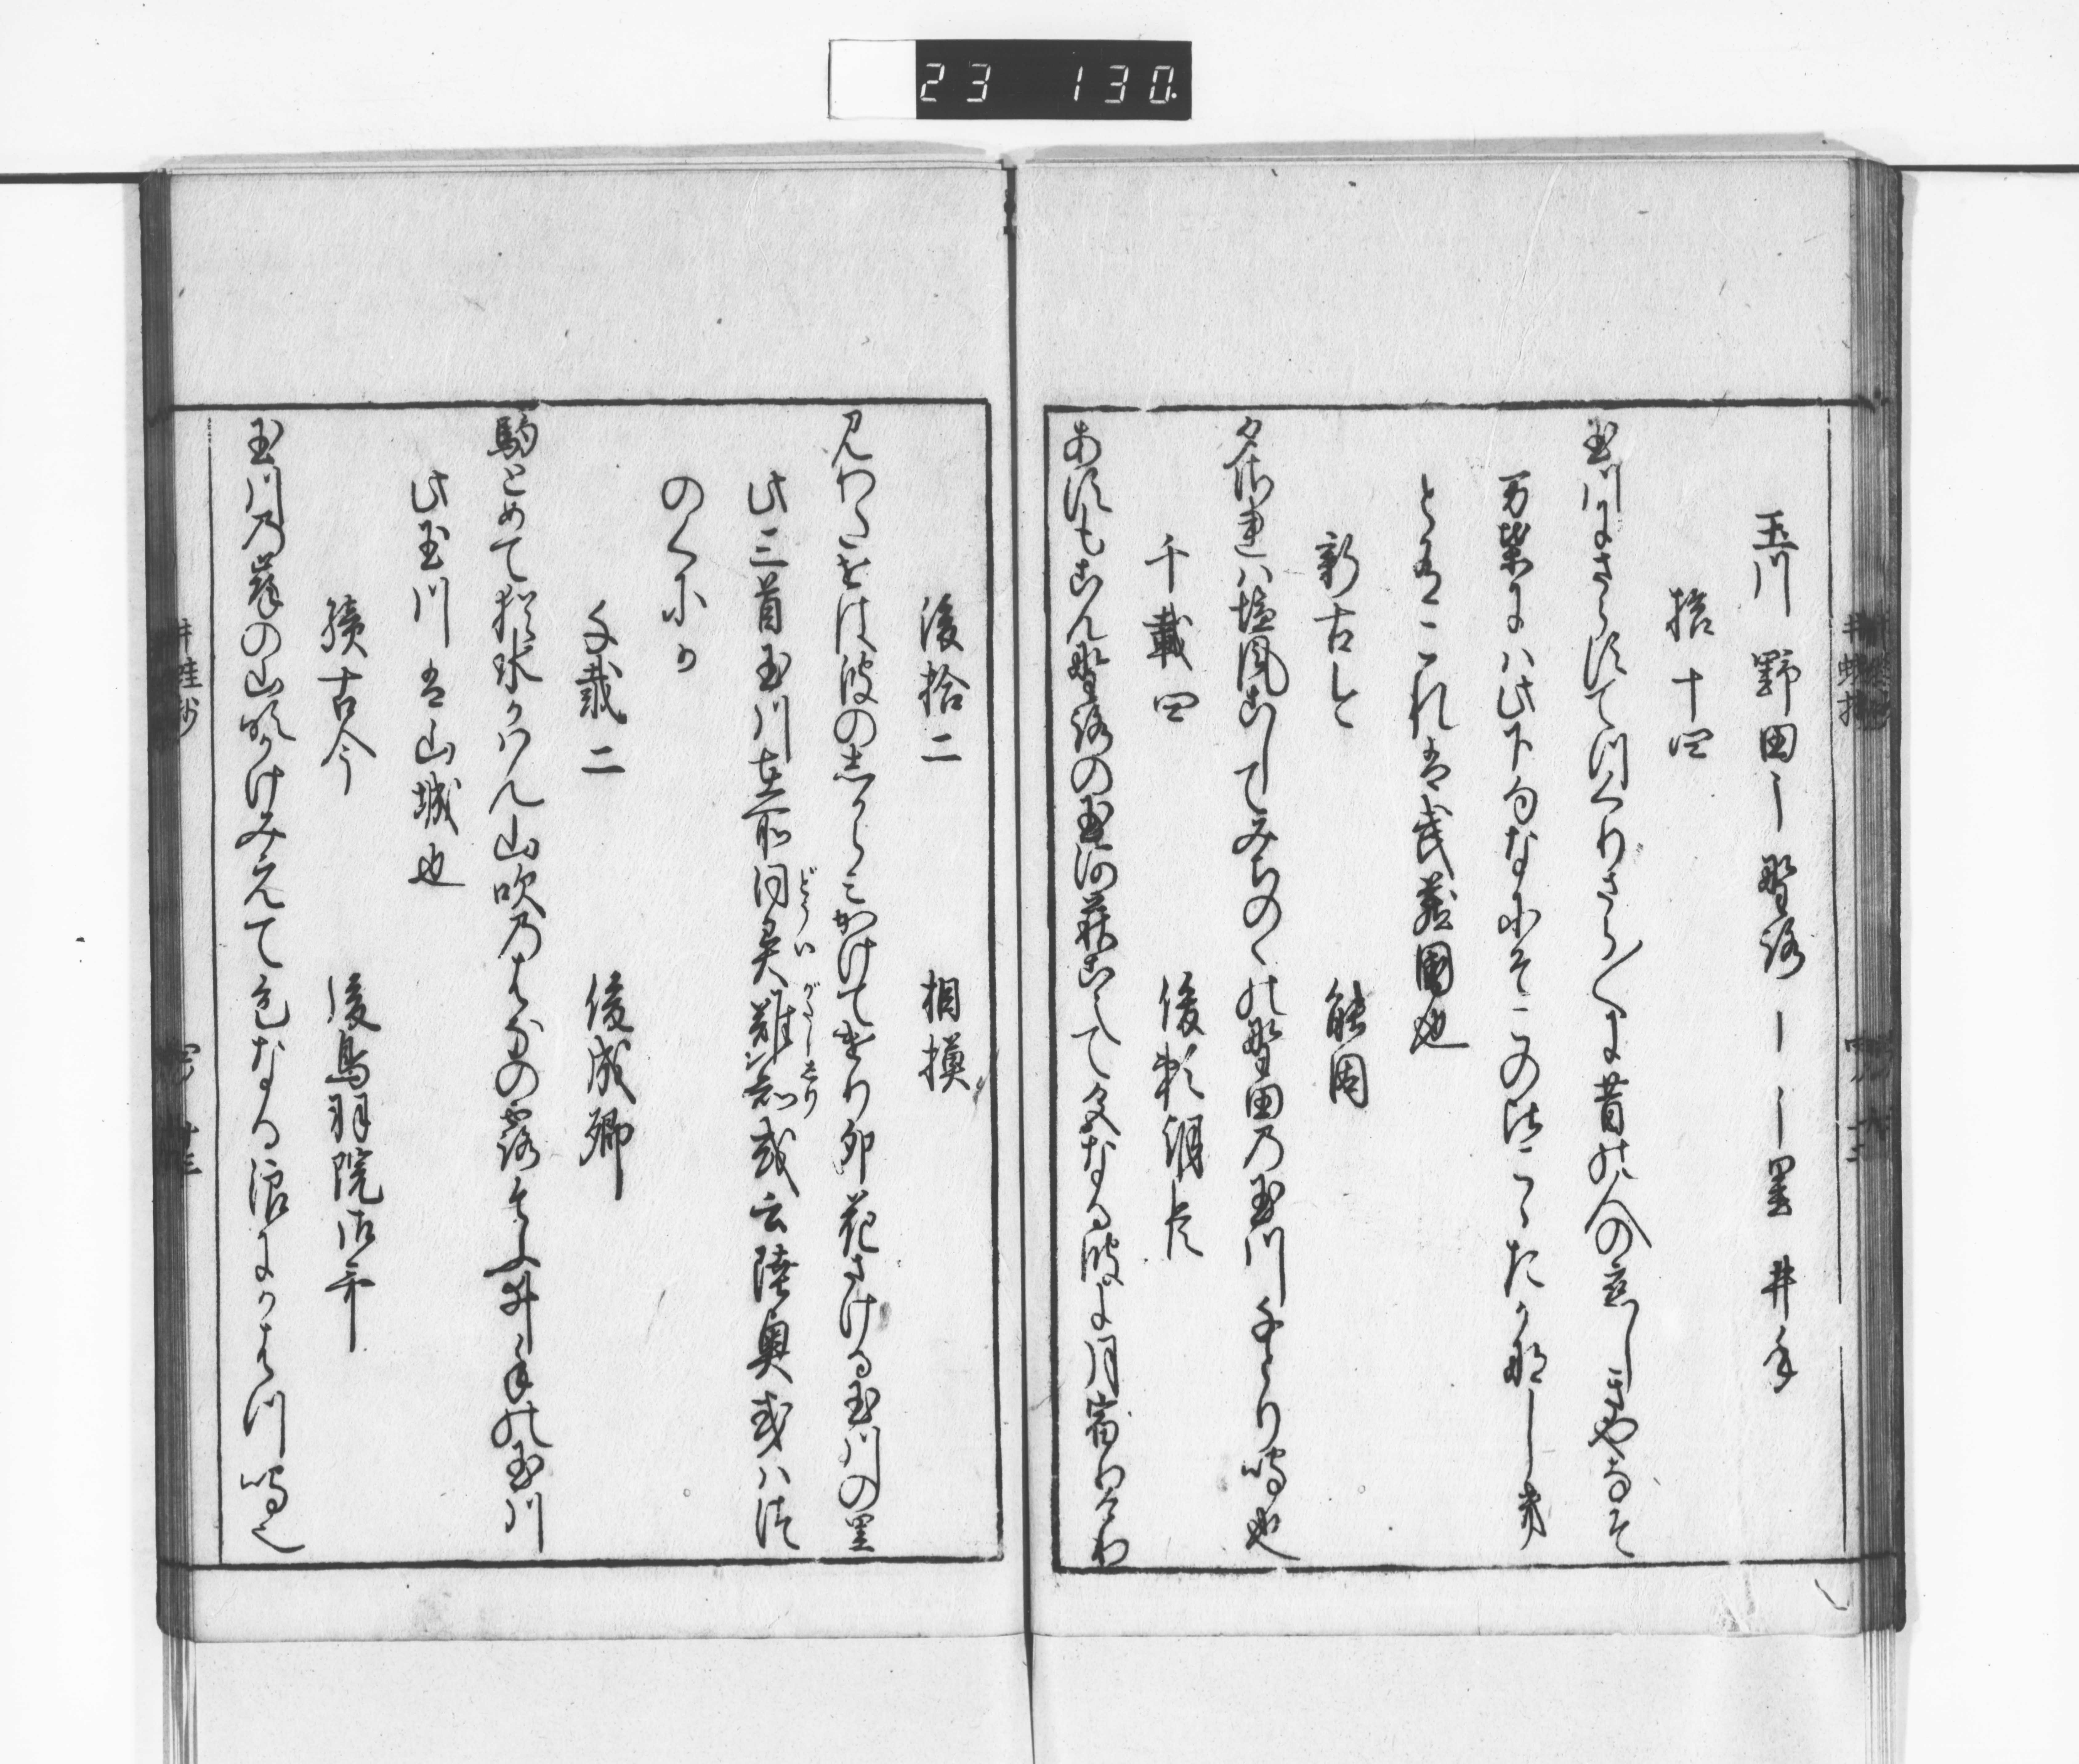 23 130
玉川 野田ー 野路ー ー里 井手
拾十四
玉川にさらすてつくりさら〳〵に昔の人の恋しきやなそ
万葉には此下句なにそこのここたかなしき
とありこれは武蔵国也
新古今 能因
夕されは塩風こしてみちのくの野田の玉川千とり鳴也
千載四 俊頼朝臣
あすもこん野路の玉河萩こえて色なる波に月宿りけり
後拾二 相摸
見わたせは波のしからみかけてけり卯花さける玉川の里
此三首玉川在所同異難知或云陸奥或ハ津
のくにか
千載二 俊成卿
駒とめて猶水かはん山吹の花の露そふ井手の玉川
此玉川は山城也
続古今 後鳥羽院御哥
玉川の岸の山吹かけみえて色なる浪にかはつ鳴也
井蛙抄